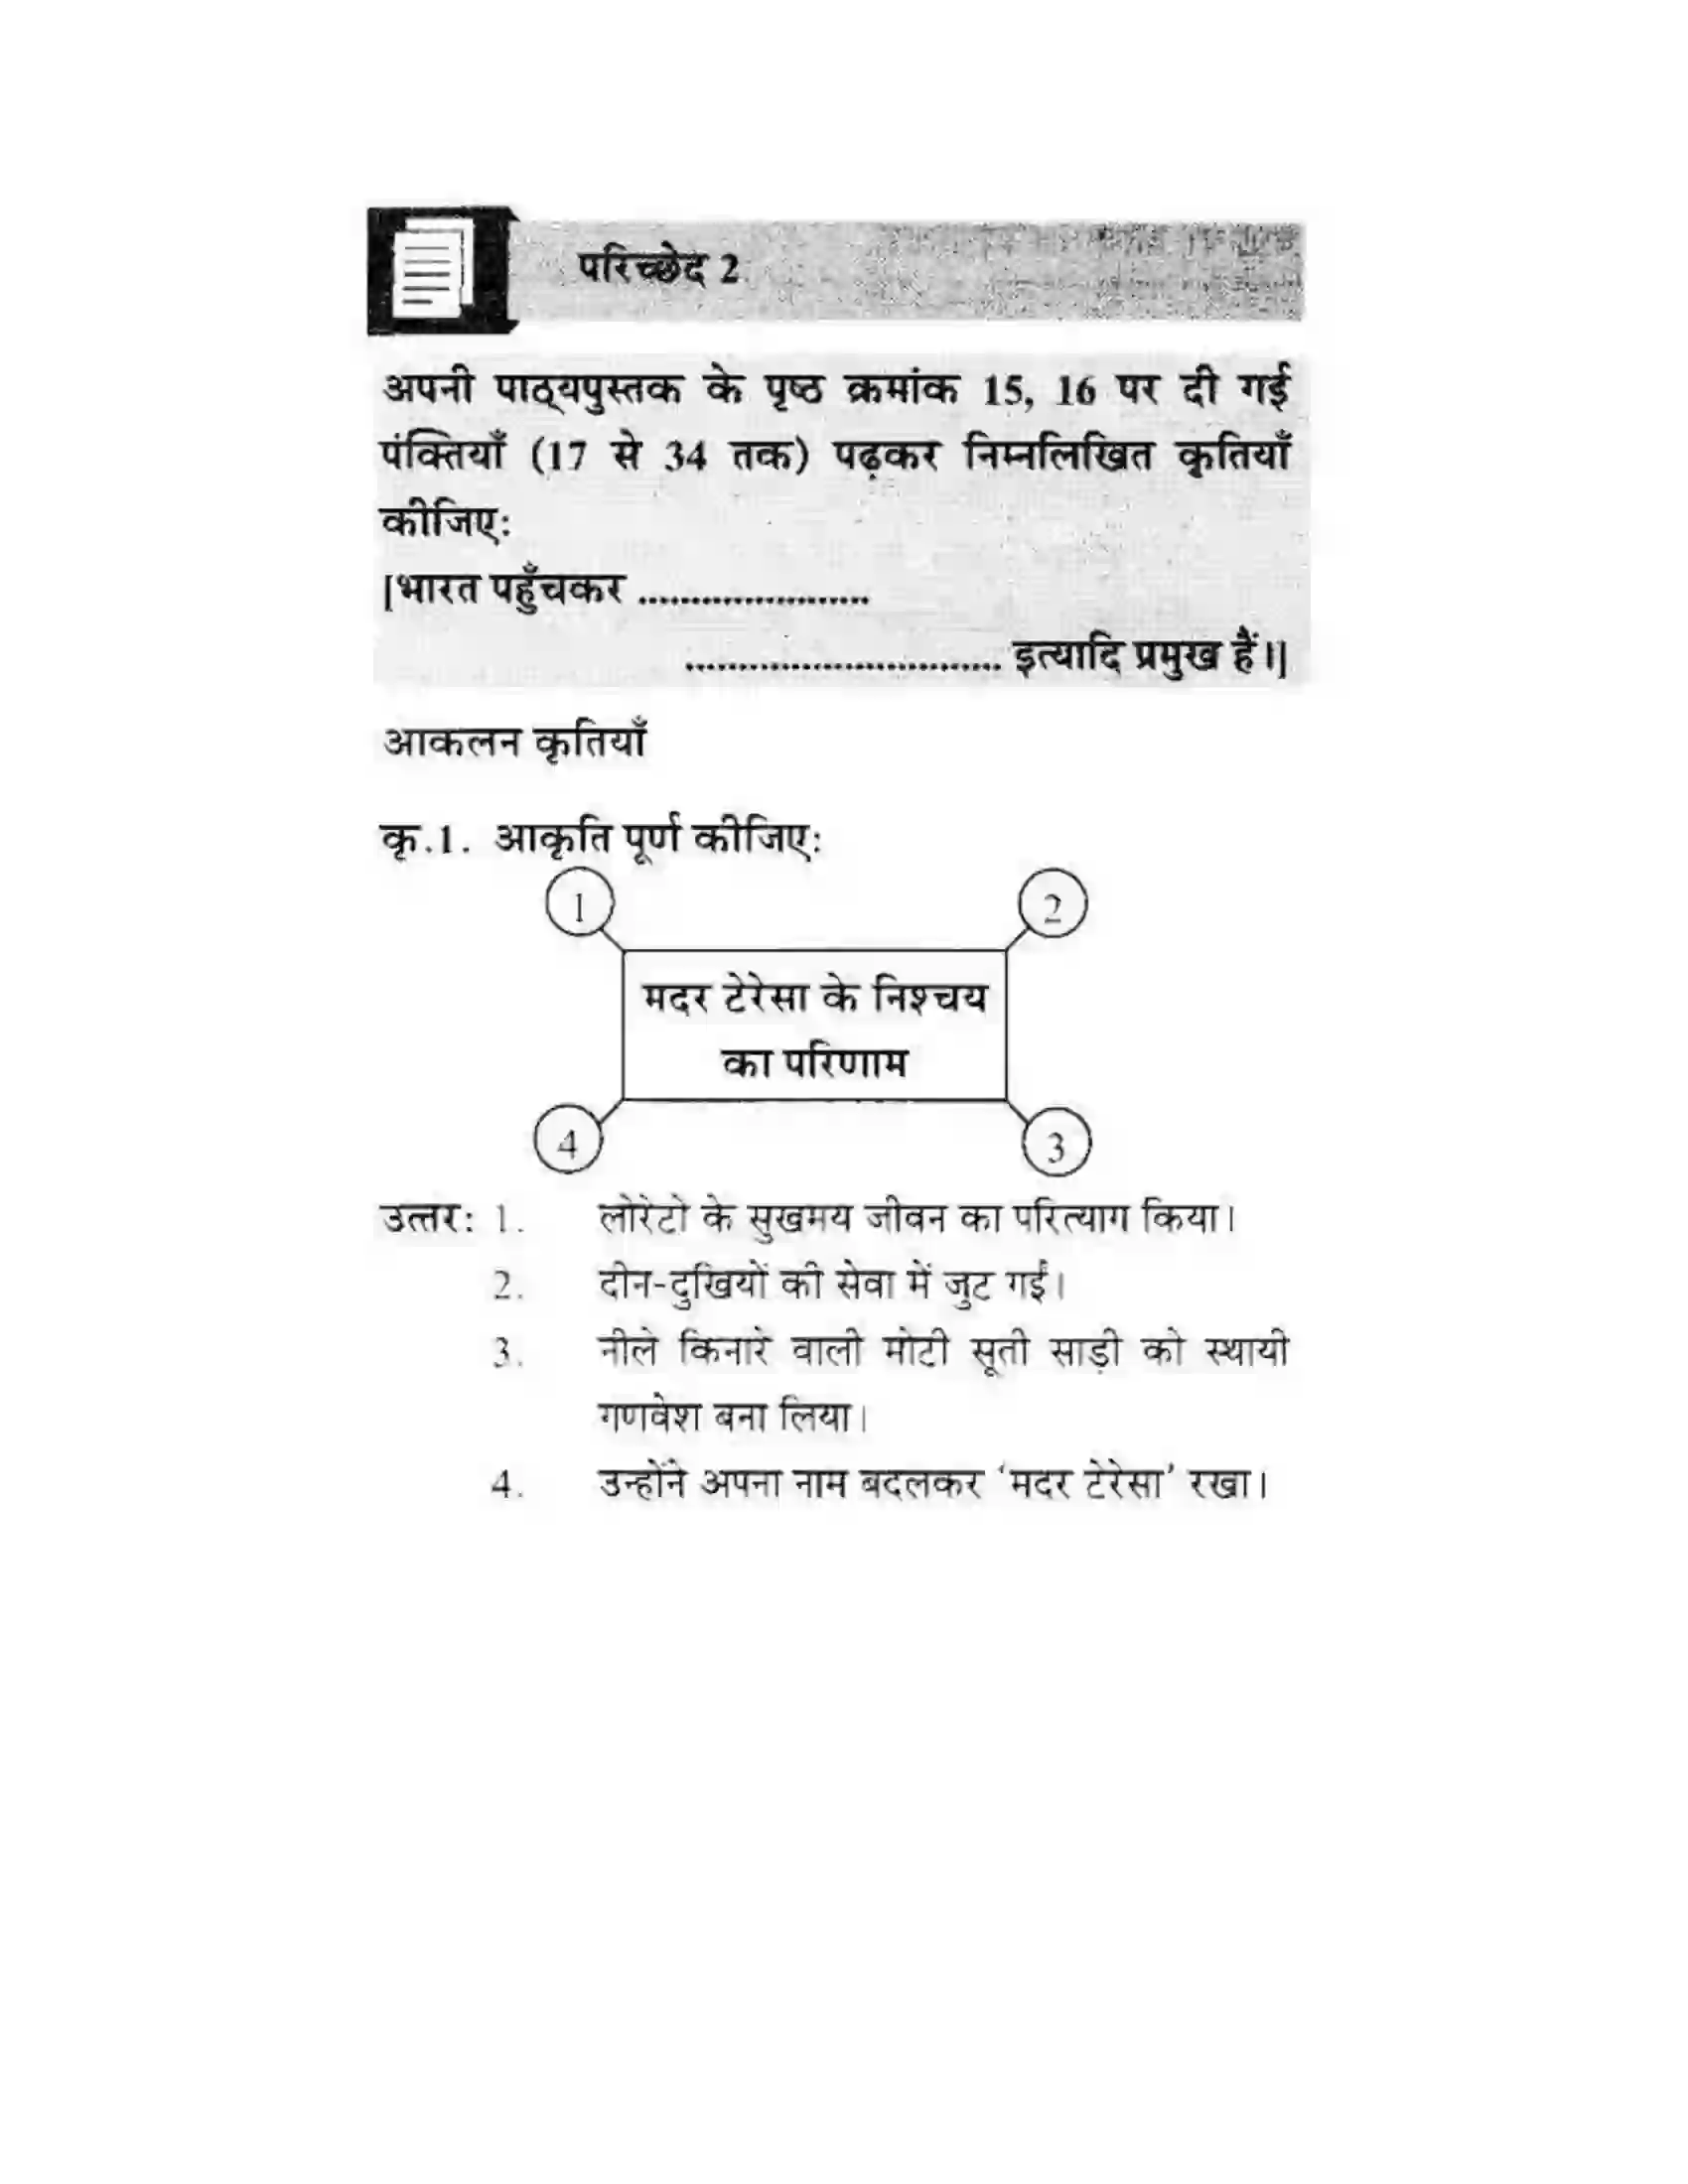 परिच्छेद 2
अपनी पाठ्यपुस्तक के पृष्ठ क्रमांक 15, 16 पर दी गई
पंक्तियाँ (17 से 34 तक) पढ़कर निम्नलिखित कृतियाँ
कीजिए:
[भारत पहुँचकर ......................
.............................. इत्यादि प्रमुख हैं।]
आकलन कृतियाँ
कृ.1. आकृति पूर्ण कीजिए:
1
2
मदर टेरेसा के निश्चय
का परिणाम
4
3
उत्तर: 1. लोरेटो के सुखमय जीवन का परित्याग किया।
2. दीन-दुखियों की सेवा में जुट गईं।
3. नीले किनारे वाली मोटी सूती साड़ी को स्थायी
गणवेश बना लिया।
4. उन्होंने अपना नाम बदलकर ‘मदर टेरेसा’ रखा।